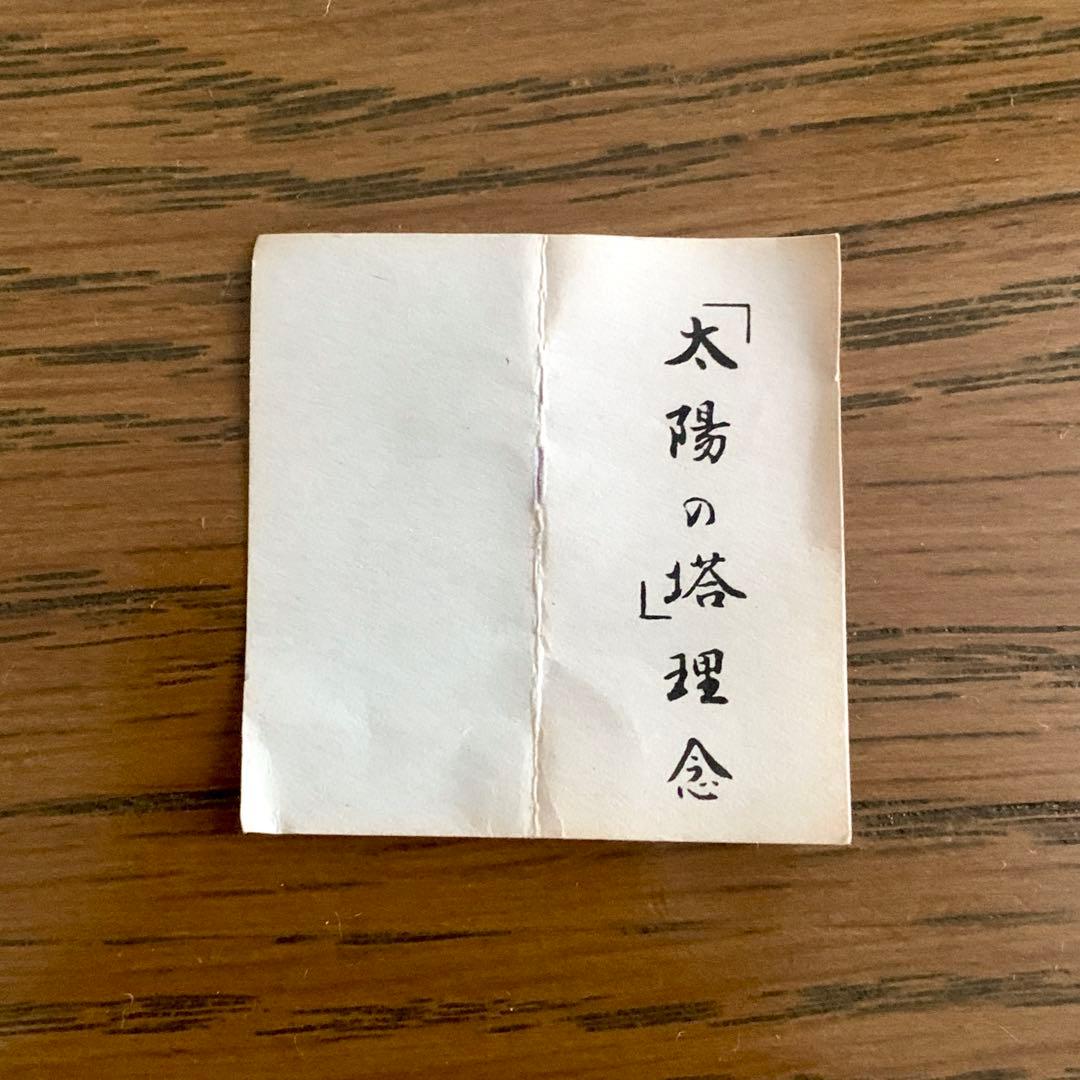 「太陽の塔」理念